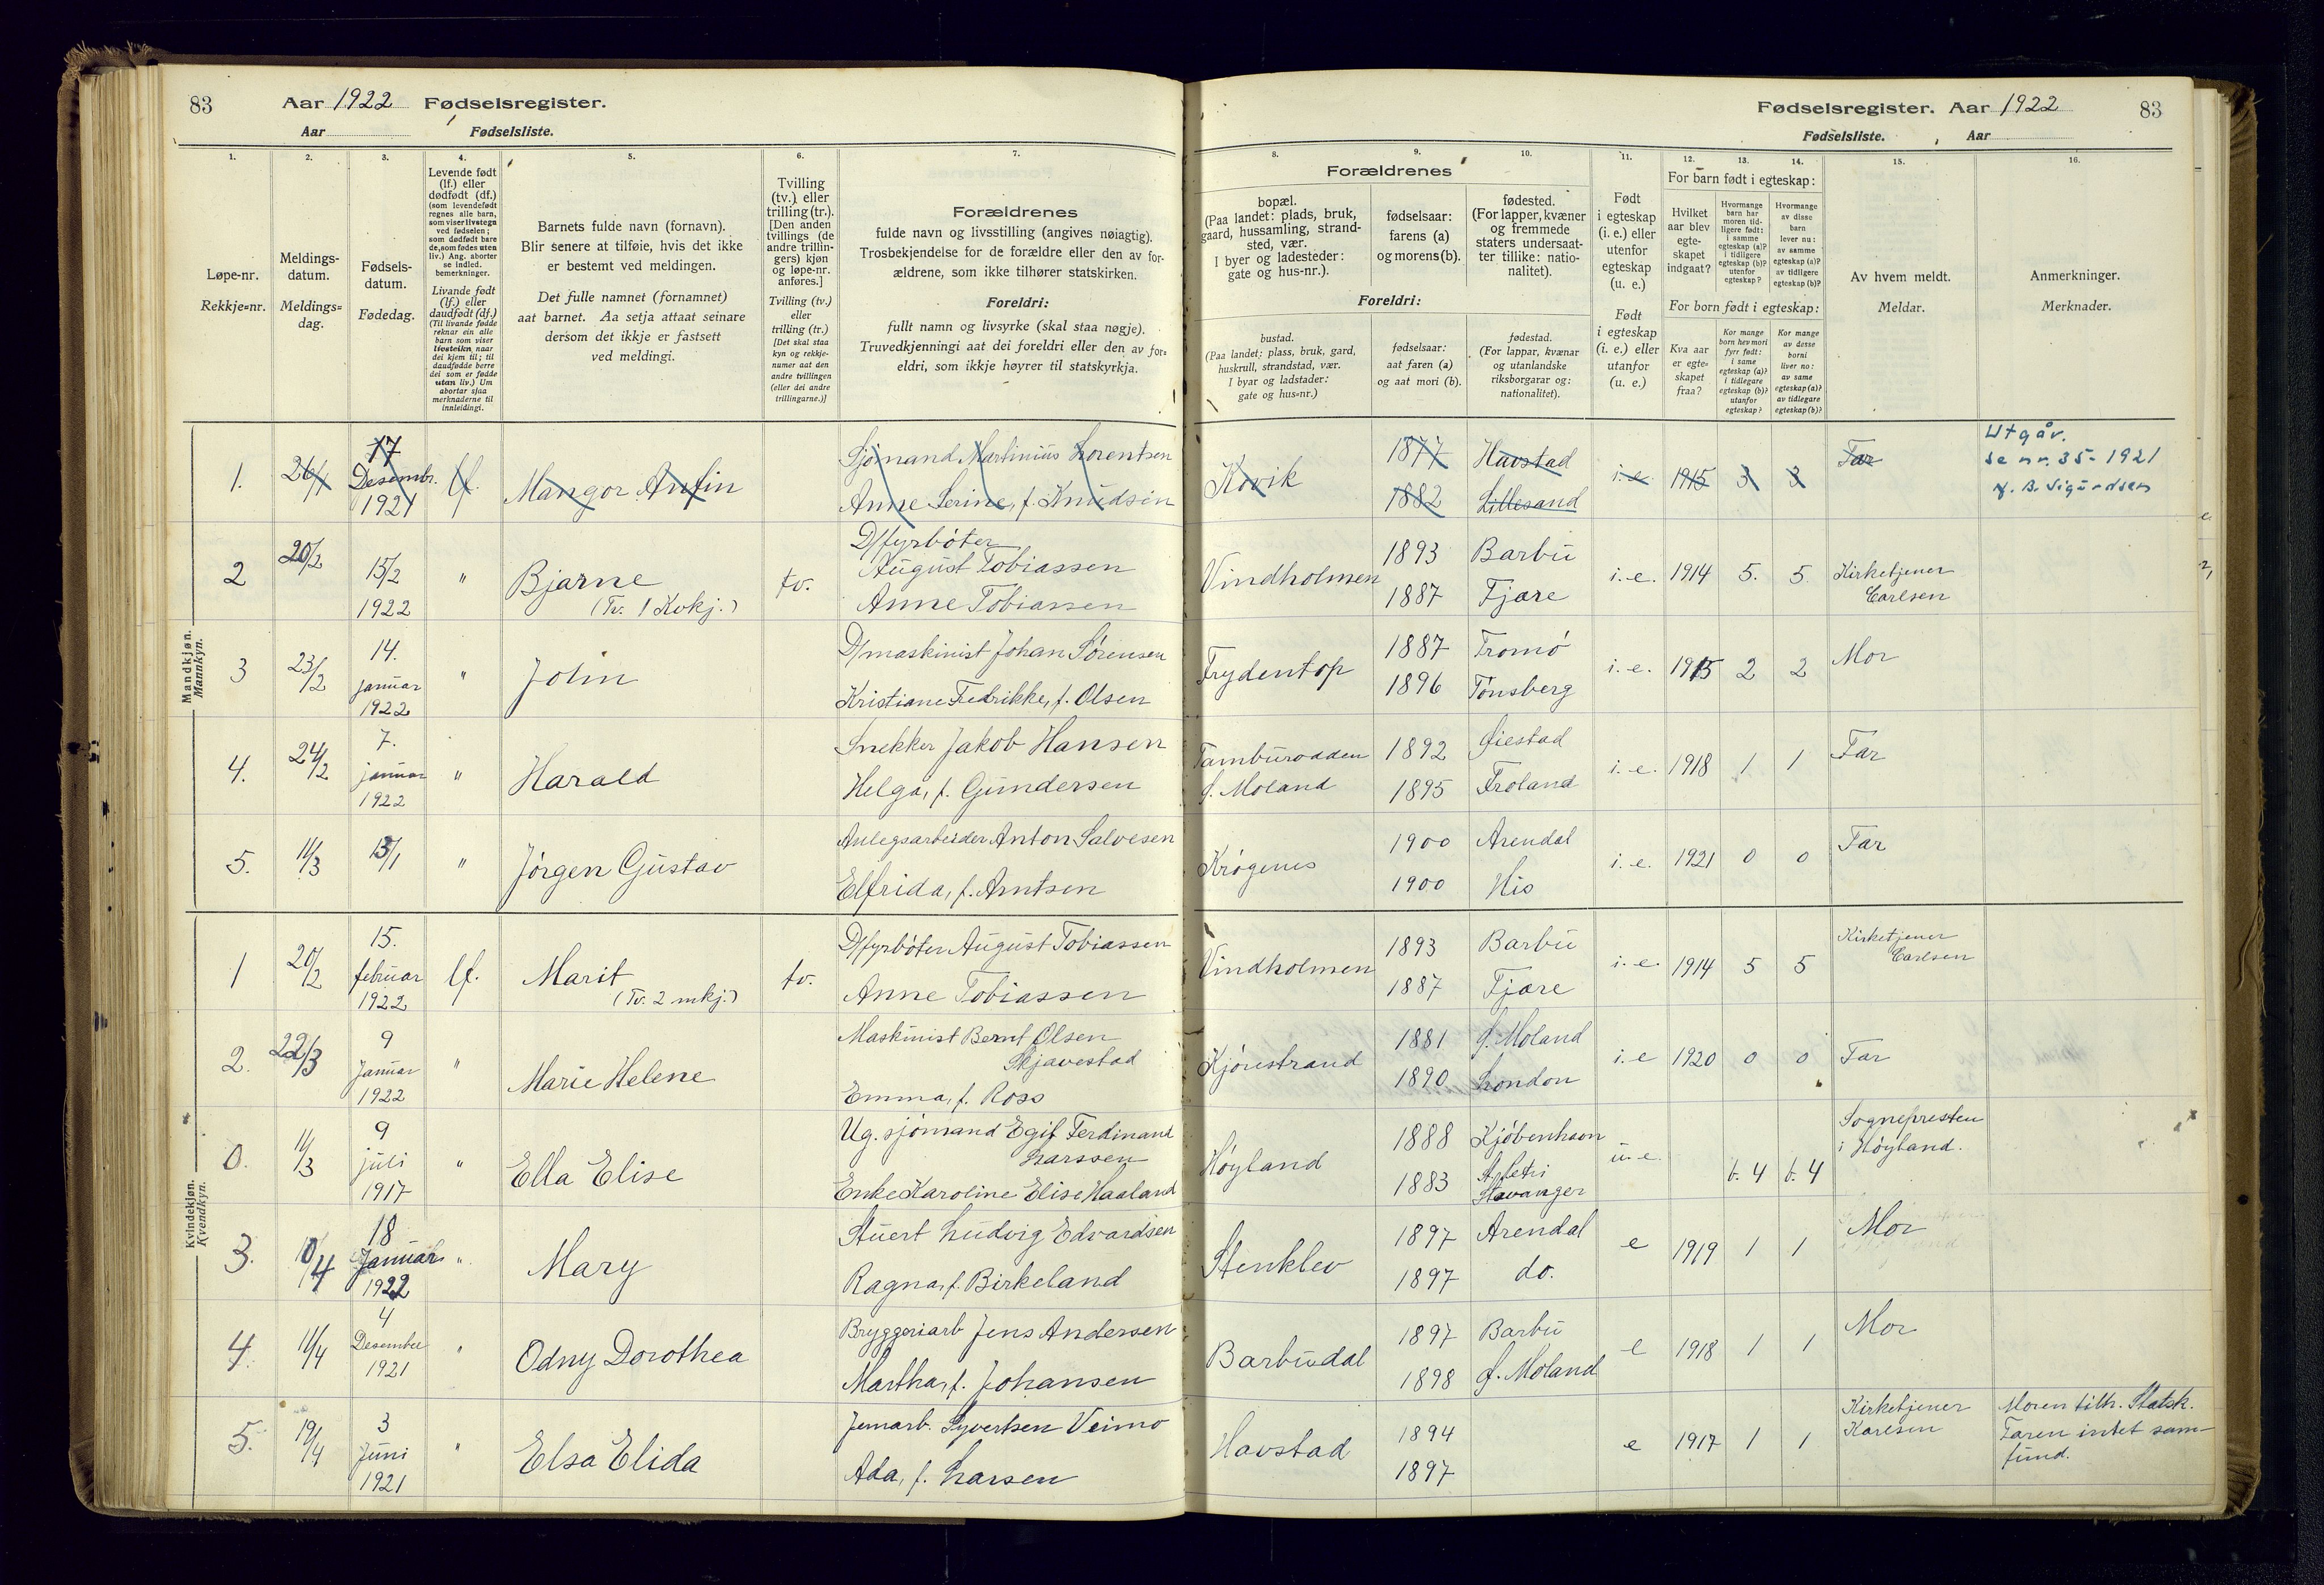 83 Aar 1922 Fødselsregister.
Aar Fødselsliste.
1. 2. 3. 4. 5. 6. 7.
Løpe-nr.
Rekkje=nr.
Meldings-
datum.
Meldings=
dag.
Fødsels-
datum.
Fødedag.
Levende født
(lf.) eller
dødfødt (df.)
(som levendefødt
regnes alle barn,
som viser livstegn
ved fødselen;
som dødfødt bare
de, som fødes uten
liv.) Ang. aborter
se indled.
bemerkninger.
Livande født
(lf.) eller
daudfødt (df.)
(Til livande fødde
reknar ein alle
barn som viser
livsteikn naar
dei kjem til; til
daudfødde berre
dei som er fødde
utan liv.) Um
abortar sjaa
merknaderne til
innleidingi.
Barnets fulde navn (fornavn).
Blir senere at tilføie, hvis det ikke
er bestemt ved meldingen.
Det fulle namnet (fornamnet)
aat barnet. Aa setja attaat seinare
dersom det ikkje er fastsett
ved meldingi.
Tvilling
(tv.) eller
trilling (tr.).
[Den anden
tvillings (de
andre trillin-
gers) kjøn
og løpe-nr.
anføres.]
Tvilling (tv.)
eller
trilling (tr.)
[Det skal staa
kyn og rekkje-
numer aat den
andre tvillingen
(eller dei andre
trillingarne.)]
Forældrenes
fulde navn og livsstilling (angives nøiagtig).
Trosbekjendelse for de forældre eller den av for-
ældrene, som ikke tilhører statskirken.
Foreldri:
fullt namn og livsyrke (skal staa nøgje).
Truvedkjenningi aat dei foreldri eller den av for=
eldri, som ikkje høyrer til statskyrkja.
Mandkjøn.
Mannkyn.
1. 26/1 17 Desembr. 1921 lf. Mangor Anfin
Sjømand Martinius Lorentsen
Anne Serine, f. Knudsen
2 20/2 15/2 1922 " Bjarne
(Tv. 1 Kvkj.) tv.
D/fyrbøter
August Tobiassen
Anne Tobiassen
3 23/2 14. januar 1922 " John
D/maskinist Johan Sørensen
Kristiane Fredrikke, f. Olsen
4. 24/2 7. januar 1922 " Harald
Snekker Jakob Hansen
Helga, f. Gundersen
5. 11/3 13/1 " Jørgen Gustav
Anlegsarbeider Anton Salvesen
Elfrida, f. Arntsen
Kvindekjøn.
Kvendkyn.
1 20/2 15. februar 1922 lf. Marit
(Tv. 2 mkj.) tv.
D/fyrbøter August Tobiassen
Anne Tobiassen
2. 22/3 9 Januar 1922 " Marie Helene
Maskinist Bernt Olsen
Skjavestad
Emma, f. Ross
0. 11/3 9 juli 1917 " Ella Elise
Ug. sjømand Egil Ferdinand
Larssen
Enke Karoline Elise Haaland
3. 10/4 18 Januar 1922 " Mary
Stuert Ludvig Edvardsen
Ragna, f. Birkeland
4. 11/4 4 Desember 1921 " Odny Dorothea
Bryggeriarb Jens Andersen
Martha, f. Johansen
5. 19/4 3 Juni 1921 " Elsa Elida
Jernarb. Syvertsen Veimo
Ada, f. Larsen
Fødselsregister. Aar 1922 83
Fødselsliste. Aar
8. 9. 10. 11. 12. 13. 14. 15. 16.
Forældrenes
bopæl.
(Paa landet: plads, bruk,
gaard, hussamling, strand-
sted, vær.
I byer og ladesteder:
gate og hus-nr.).
fødselsaar:
farens (a)
og morens (b).
fødested.
(For lapper, kvæner
og fremmede
staters undersaat-
ter tillike: natio-
nalitet).
Foreldri:
bustad.
(Paa landet: plass, bruk, gard,
huskrull, strandstad, vær.
I byar og ladstader:
gate og hus=nr.)
fødselsaar:
aat faren (a)
og aat mori (b).
fødestad.
(For lappar, kvænar
og utanlandske
riksborgarar og:
nationalitet).
Født
i egteskap
(i. e.) eller
utenfor
egteskap
(u. e.)
Født
i egteskap
(i. e.) eller
utanfor
(u. e.)
For barn født i egteskap:
Hvilket
aar blev
egte-
skapet
indgaat?
Hvormange
barn har
moren tid-
ligere født:
i samme
egteskap (a)?
i tidligere
egteskap (b)?
utenfor
egteskap?
Hvormange
av disse
barn
lever nu:
av samme
egteskap (a)?
av tidligere
egteskap (b)?
For born født i egteskap:
Kva aar
er egte-
skapet
fraa?
Kor mange
born hev mori
fyrr født:
i same
egteskap (a)?
i tidlegare
egteskap (b)?
utanfor
egteskap?
Kor mange
av desse
borni
liver no:
av same
egteskap (a)?
av tidlegare
egteskap (b)?
Av hvem meldt.
Meldar.
Anmerkninger.
Merknader.
Kovik 1877 Havstad
1882 Lillesand
i-e. 1915 3 3 Far
Utgår.
se nr. 35-1921
B. Sigurdsen
Vindholmen 1893 Barbu
1887 Fjære
i.-e. 1914 5. 5. Kirketjener
Carlsen
Frydentop 1887 Tromø
1896 Tønsberg
i.-e. 1915 2 2 Mor
Tamburodden
ø. Moland
1892 Øiestad
1895 Froland
i.-e. 1918 1 1 Far
Krøgenes 1900 Arendal
1900 His
i.-e. 1921 0 0 Far
Vindholmen 1893 Barbu
1887 Fjære
i.-e. 1914 5 5 Kirketjener
Carlsen
Kjørestrand 1881 ø. Moland
1890 London
i.-e 1920 0 0 Far
Høyland 1888 Kjøbenhavn
1883
Stavanger
u-e. b. 4 b. 4
Sognepresten
i Høyland.
Stenklev 1897 Arendal
1897 do.
e 1919 1 1 Mor
Barbudal 1897 Barbu
1898 ø. Moland
e 1918 1 1 Mor
Havstad 1894
1897
e 1917 1 1 Kirketjener
Karlsen
Moren tilh. Statsk.
Faren intet sam-
fund.